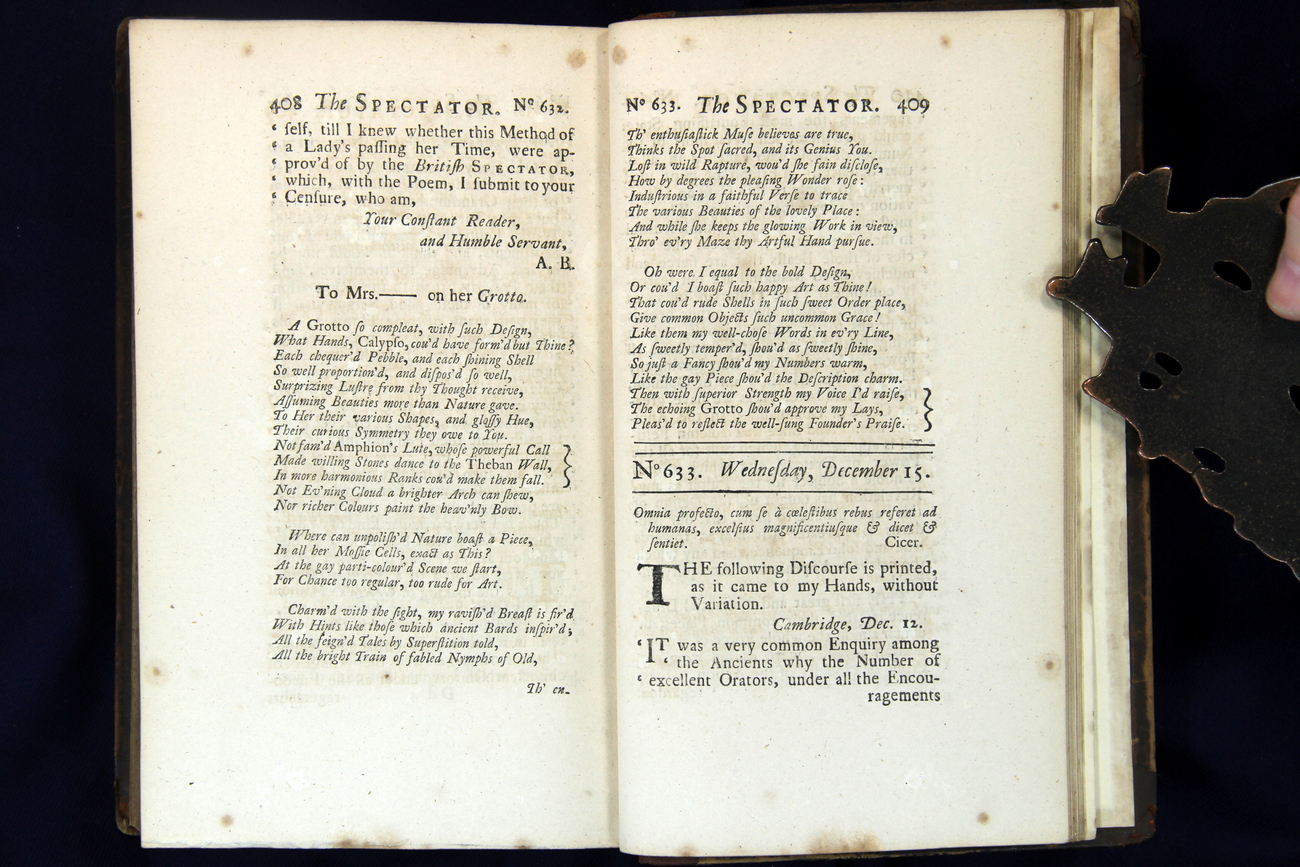 408 The SPECTATOR. Nº 632.
‘ ſelf, till I knew whether this Method of
‘ a Lady's paſſing her Time, were ap-
‘ prov'd of by the Britiſh SPECTATOR,
‘ which, with the Poem, I ſubmit to your
‘ Cenſure, who am,
Your Conſtant Reader,
and Humble Servant,
A. B.
To Mrs.—— on her Grotto.
A Grotto ſo compleat, with ſuch Deſign,
What Hands, Calypſo, cou'd have form'd but Thine?
Each chequer'd Pebble, and each ſhining Shell
So well proportion'd, and diſpos'd ſo well,
Surprizing Luſtre from thy Thought receive,
Aſſuming Beauties more than Nature gave.
To Her their various Shapes, and gloſſy Hue,
Their curious Symmetry they owe to You.
Not fam'd Amphion's Lute, whoſe powerful Call
Made willing Stones dance to the Theban Wall,
In more harmonious Ranks cou'd make them fall.
Not Ev'ning Cloud a brighter Arch can ſhew,
Nor richer Colours paint the heav'nly Bow.
Where can unpoliſh'd Nature boaſt a Piece,
In all her Moſſie Cells, exact as This?
At the gay parti-colour'd Scene we ſtart,
For Chance too regular, too rude for Art.
Charm'd with the ſight, my raviſh'd Breaſt is fir'd
With Hints like thoſe which ancient Bards inſpir'd;
All the feign'd Tales by Superſtition told,
All the bright Train of fabled Nymphs of Old,
Th' en-
Nº 633. The SPECTATOR. 409
Th' enthuſiaſtick Muſe believes are true,
Thinks the Spot ſacred, and its Genius You.
Loſt in wild Rapture, wou'd ſhe fain diſcloſe,
How by degrees the pleaſing Wonder roſe:
Induſtrious in a faithful Verſe to trace
The various Beauties of the lovely Place:
And while ſhe keeps the glowing Work in view,
Thro' ev'ry Maze thy Artful Hand purſue.
Oh were I equal to the bold Deſign,
Or cou'd I boaſt ſuch happy Art as Thine!
That cou'd rude Shells in ſuch ſweet Order place,
Give common Objects ſuch uncommon Grace!
Like them my well-choſe Words in ev'ry Line,
As ſweetly temper'd, ſhou'd as ſweetly ſhine,
So juſt a Fancy ſhou'd my Numbers warm,
Like the gay Piece ſhou'd the Deſcription charm.
Then with ſuperior Strength my Voice I'd raiſe,
The echoing Grotto ſhou'd approve my Lays,
Pleas'd to reflect the well-ſung Founder's Praiſe.
Nº 633. Wedneſday, December 15.
Omnia profecto, cum ſe à cœleſtibus rebus referet ad
humanas, excelſius magnificentiuſque & dicet &
ſentiet. Cicer.
THE following Diſcourſe is printed,
as it came to my Hands, without
Variation.
Cambridge, Dec. 12.
‘ IT was a very common Enquiry among
‘ the Ancients why the Number of
‘ excellent Orators, under all the Encou-
ragements